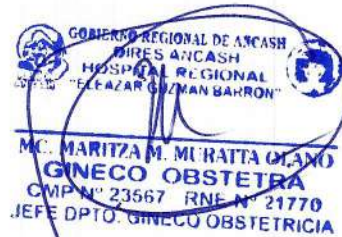 GOBIERNO REGIONAL DE ANCASH
DIRES ANCASH
HOSPITAL REGIONAL
"ELEAZAR GUZMAN BARRON"
MC. MARITZA M. MURATTA OLANO
GINECO OBSTETRA
CMP Nº 23567 RNE Nº 21770
JEFE DPTO. GINECO OBSTETRICIA